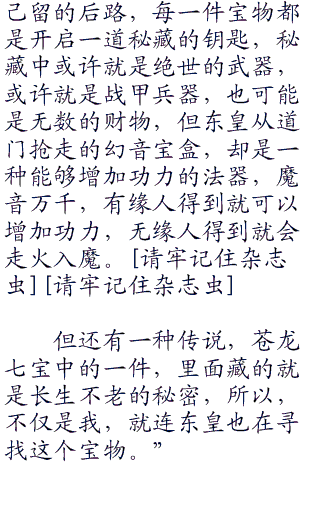 己留的后路，每一件宝物都
是开启一道秘藏的钥匙，秘
藏中或许就是绝世的武器，
或许就是战甲兵器，也可能
是无数的财物，但东皇从道
门抢走的幻音宝盒，却是一
种能够增加功力的法器，魔
音万千，有缘人得到就可以
增加功力，无缘人得到就会
走火入魔。[请牢记住杂志
虫][请牢记住杂志虫]
但还有一种传说，苍龙
七宝中的一件，里面藏的就
是长生不老的秘密，所以，
不仅是我，就连东皇也在寻
找这个宝物。”